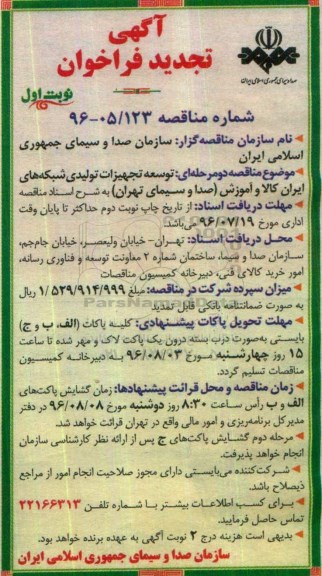 آگهی
تجدید فراخوان
صدا و سیمای جمهوری اسلامی ایران
نوبت اول
شماره مناقصه ۹۶-۰۵/۱۲۳
نام سازمان مناقصه‌گزار: سازمان صدا و سیمای جمهوری
اسلامی ایران
موضوع مناقصه دومرحله‌ای: توسعه تجهیزات تولیدی شبکه‌های
ایران کالا و آموزش (صدا و سیمای تهران) به شرح اسناد مناقصه
مهلت دریافت اسناد: از تاریخ چاپ نوبت دوم حداکثر تا پایان وقت
اداری مورخ ۹۶/۰۷/۱۹ می‌باشد.
محل دریافت اسناد: تهران- خیابان ولیعصر، خیابان جام‌جم،
سازمان صدا و سیما، ساختمان شماره ۲ معاونت توسعه و فناوری رسانه،
امور خرید کالای فنی، دبیرخانه کمیسیون مناقصات
میزان سپرده شرکت در مناقصه: مبلغ ۱/۵۲۹/۹۱۴/۹۹۹ ریال
به صورت ضمانتنامه بانکی قابل تمدید
مهلت تحویل پاکات پیشنهادی: کلیه پاکات (الف، ب و ج)
بایستی به‌صورت درب بسته درون یک پاکت لاک و مهر شده تا ساعت
۱۵ روز چهارشنبه مورخ ۹۶/۰۸/۰۳ به دبیرخانه کمیسیون
مناقصات تسلیم گردد.
زمان مناقصه و محل قرائت پیشنهادها: زمان گشایش پاکت‌های
الف و ب رأس ساعت ۸:۳۰ روز دوشنبه مورخ ۹۶/۰۸/۰۸ در دفتر
مدیرکل برنامه‌ریزی و امور مالی واقع در تهران قرائت خواهد شد.
مرحله دوم گشایش پاکت‌های ج پس از ارائه نظر کارشناسی سازمان
انجام خواهد پذیرفت.
شرکت‌کننده می‌بایستی دارای مجوز صلاحیت انجام امور از مراجع
ذیصلاح باشد.
برای کسب اطلاعات بیشتر با شماره تلفن ۲۲۱۶۶۳۱۳
تماس حاصل فرمایید.
بدیهی است هزینه درج ۲ نوبت آگهی به عهده برنده خواهد بود.
سازمان صدا و سیمای جمهوری اسلامی ایران